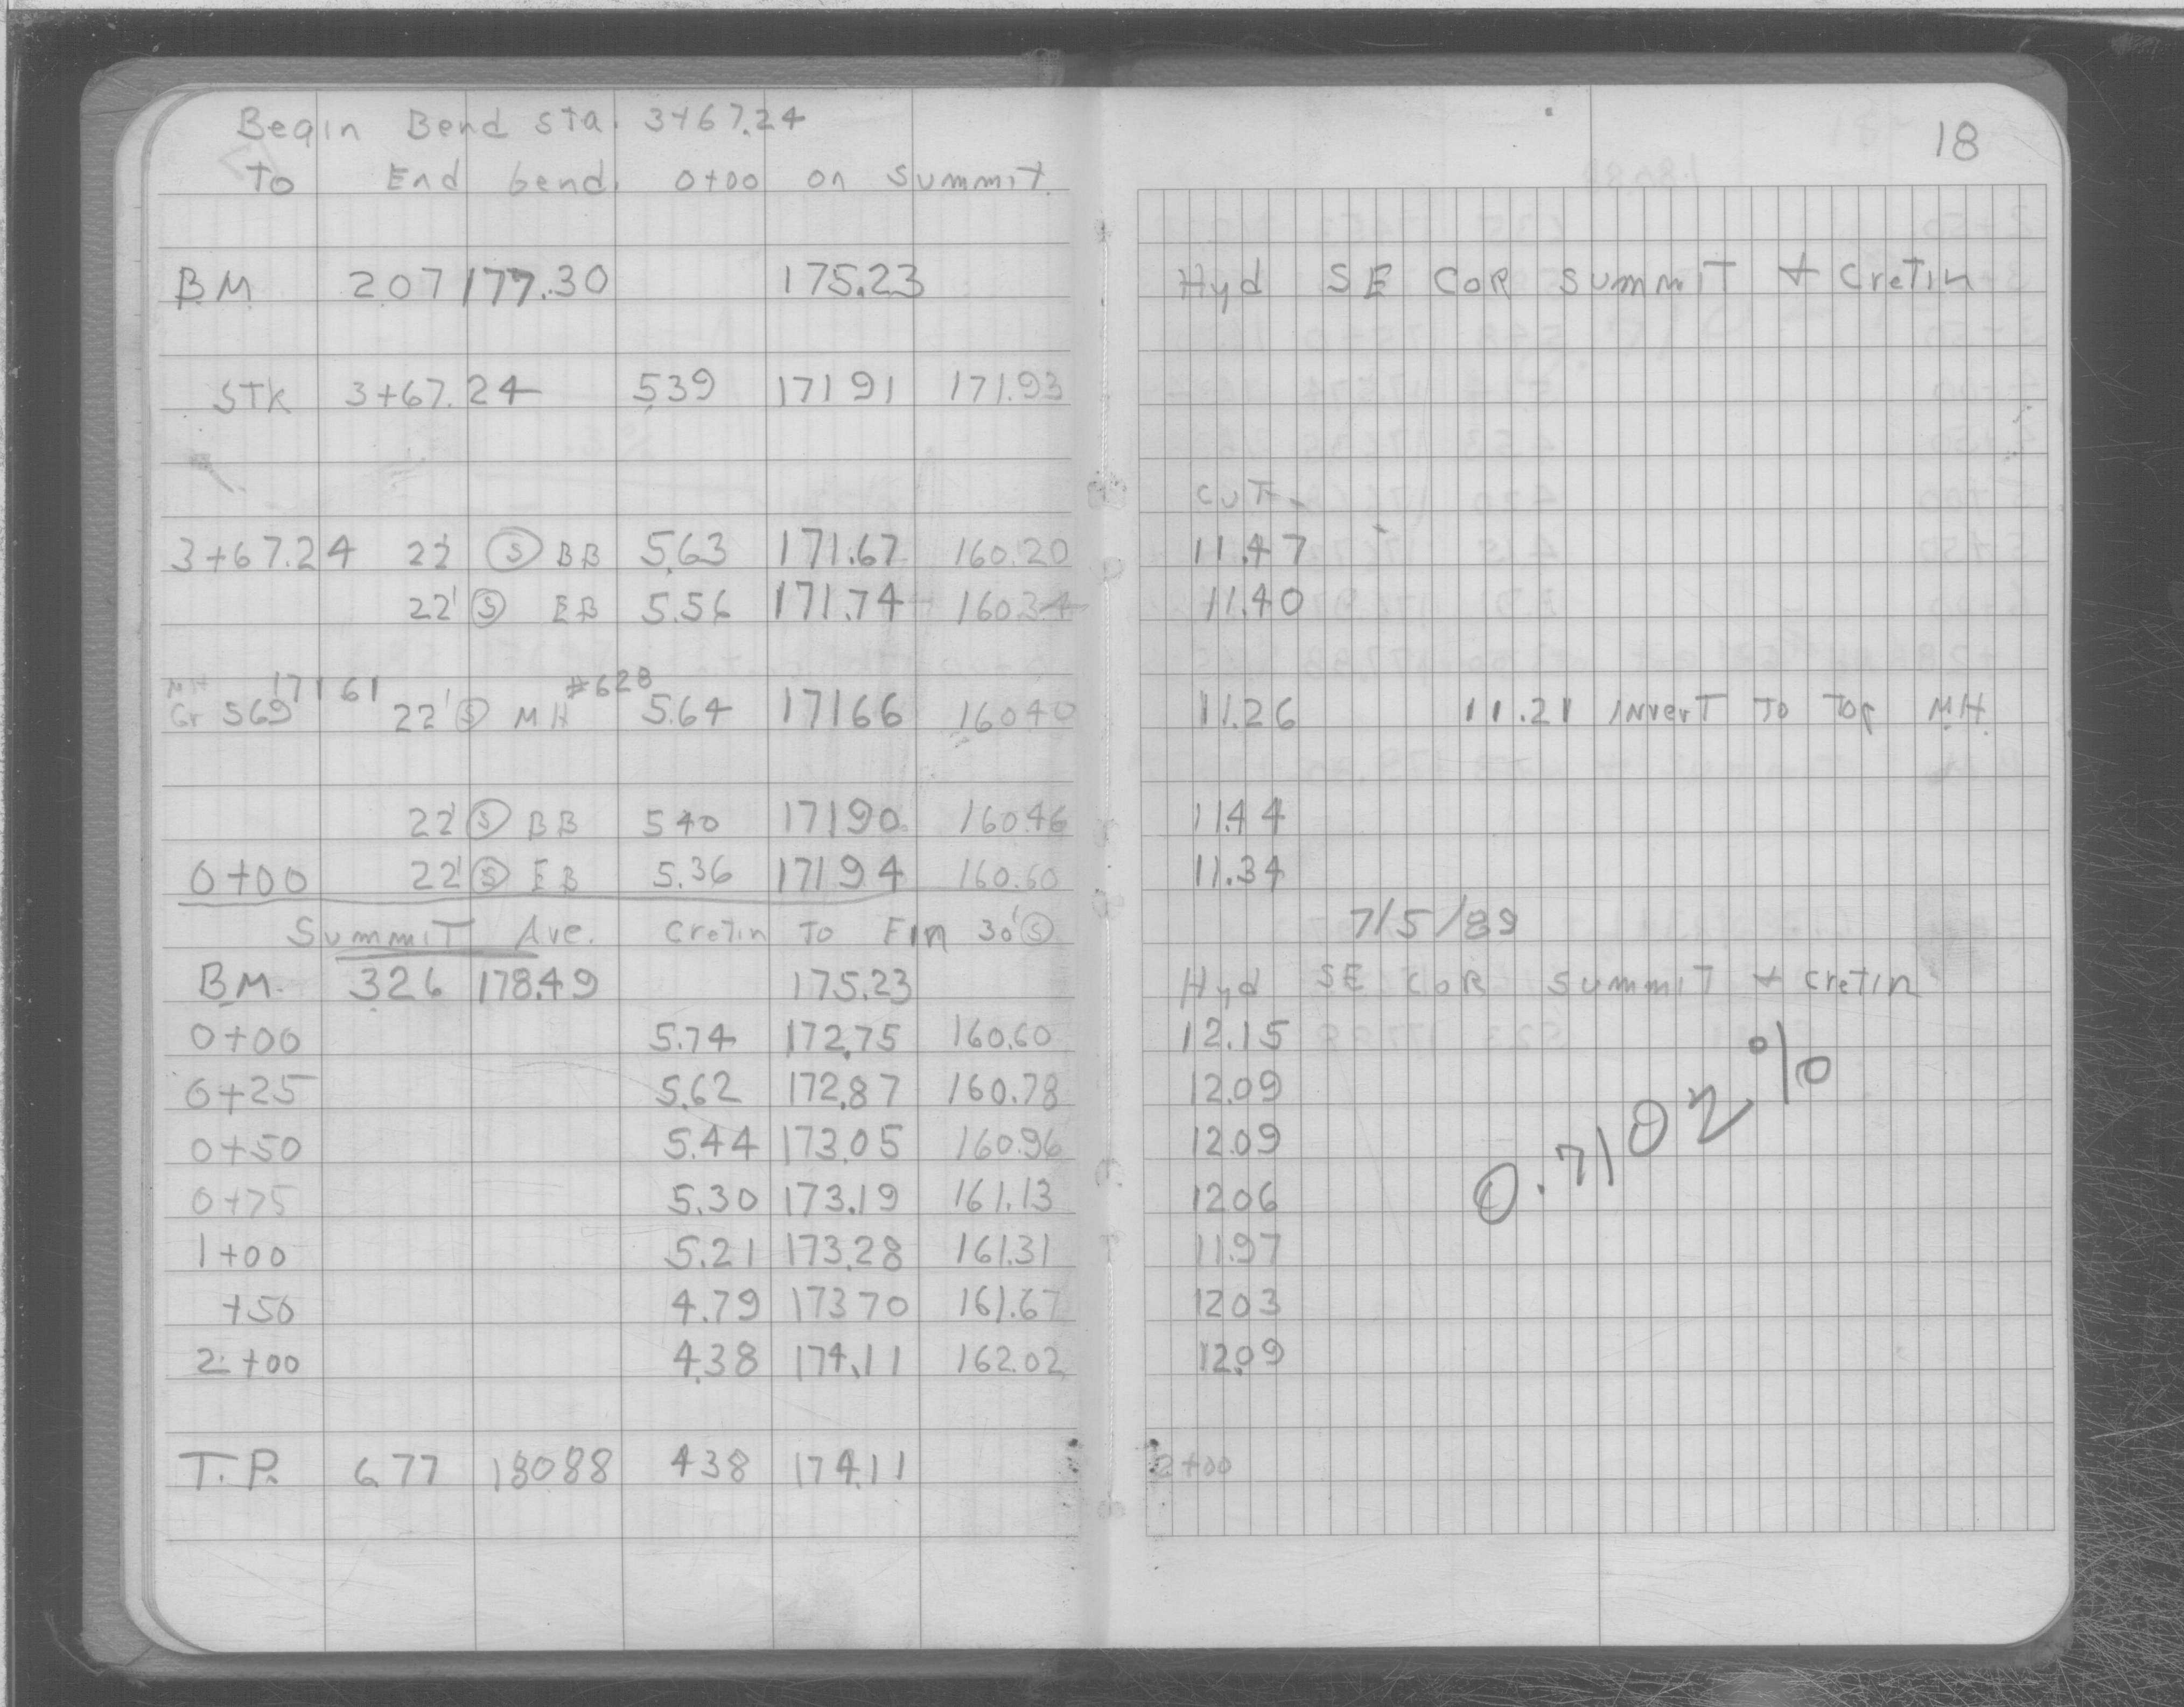 Begin Bend Sta. 3+67.24
To End bend. 0+00 on Summit.
18
BM 2.07 177.30 175.23 Hyd SE COR Summit + Cretin
STK 3+67.24 5.39 171 91 171.93
CUT
3+67.24 22' Ⓢ BB 5.63 171.67 160.20 11.47
22' Ⓢ EB 5.56 171.74 160.34 11.40
MH 171 61 #628
Gr 569 22' Ⓢ MH 5.64 171 66 160 40 11.26 11.21 Invert To Top MH
22' Ⓢ BB 5 40 171 90 160.46 11.44
0+00 22' Ⓢ EB 5.36 171 94 160.60 11.34
Summit Ave. Cretin To Finn 30' Ⓢ 7/5/89
B.M. 3.26 178.49 175.23 Hyd SE COR Summit + Cretin
0+00 5.74 172.75 160.60 12.15
0+25 5.62 172.87 160.78 12.09
0+50 5.44 173.05 160.96 12.09
0+75 5.30 173.19 161.13 12 06
0.7102%
1+00 5.21 173.28 161.31 11.97
+50 4.79 173 70 161.67 12 03
2+00 4.38 174.11 162.02 12.09
T.P. 6.77 180 88 4 38 174.11 2+00